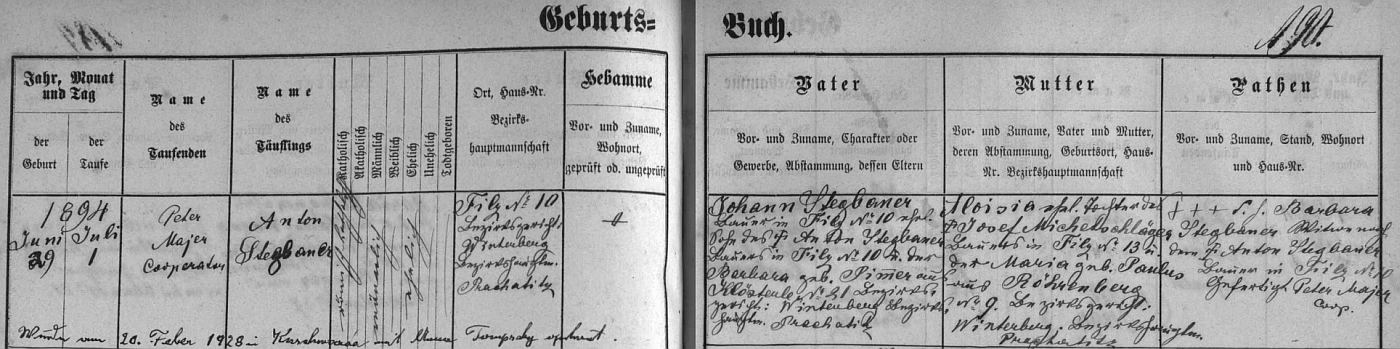 Geburts= Buch.
190.
Jahr, Monat und Tag
der Geburt
der Taufe
Name des Taufenden
Name des Täuflings
Katholisch
Akatholisch
Männlich
Weiblich
Ehelich
Unehelich
Todtgeboren
Ort, Haus-Nr.
Bezirks-
hauptmannschaft
Hebamme
Vor- und Zuname,
Wohnort,
geprüft od. ungeprüft
Vater
Vor- und Zuname, Charakter oder
Gewerbe, Abstammung, dessen Eltern
Mutter
Vor- und Zuname, Vater und Mutter,
deren Abstammung, Geburtsort, Haus-
Nr. Bezirkshauptmannschaft
Pathen
Vor- und Zuname, Stand, Wohnort
und Haus-Nr.
1894
Juni Juli
29 1
Peter
Majer
Cooperator
Anton
Stegbauer
männlich
ehelich
Filz No 10
Bezirksgericht
Winterberg
Bezirkshauptm.
Prachatitz
Johann Stegbauer
Bauer in Filz No 10 ehel.
Sohn des † Anton Stegbauer
Bauers in Filz No 10 u. der
Barbara geb. Pimer aus
No 21 Bezirks-
gericht: Winterberg Bezirks-
hauptm. Prachatitz
Aloisia ehel. Tochter des
† Josef Michetschläger
Bauers in Filz No 13 u.
der Maria geb. Paulus
aus Röhrenberg
No 9. Bezirksgericht:
Winterberg, Bezirkshauptm.
Prachatitz
+ + + Barbara
Stegbauer Witwe nach
dem † Anton Stegbauer
Bauer in Filz No 10
Gefertigt Peter Majer
Coop.
Wurde am 20. Feber 1928 in mit getraut.